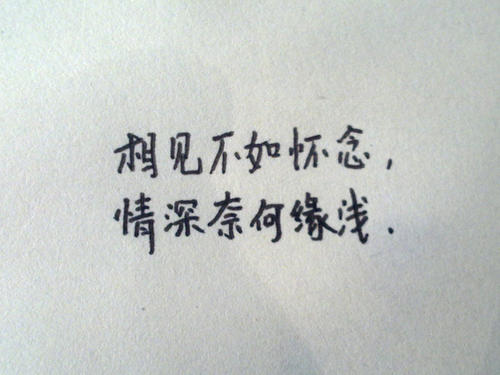 相见不如怀念，
情深奈何缘浅.